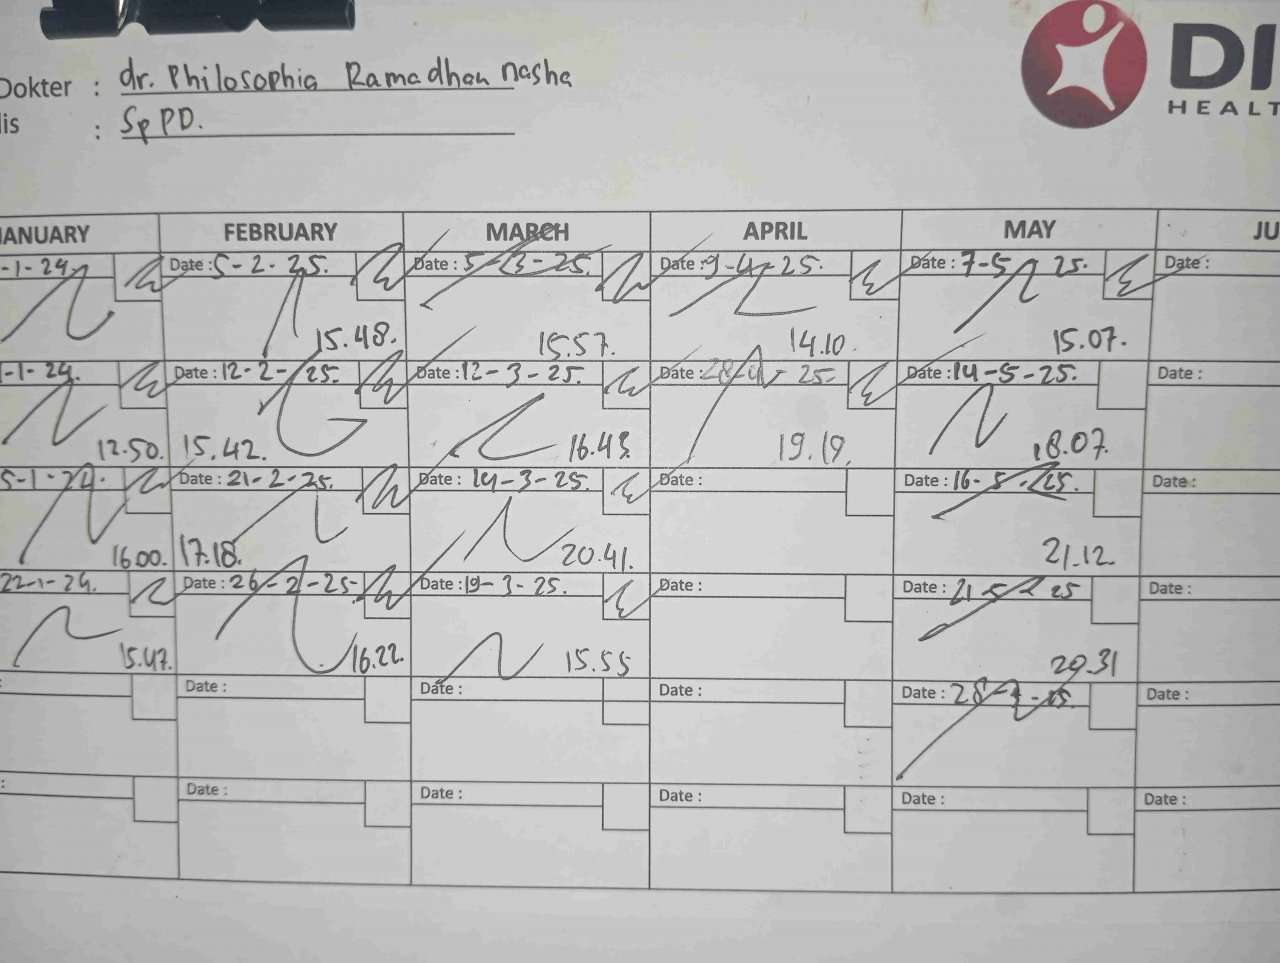 Dokter : dr. Philosophia Ramadhan nasha
lis : Sp PD.
DI
HEALT
JANUARY FEBRUARY MARCH APRIL MAY JU
-1-24. Date : 5-2-25. Date : 5-3-25. Date : 9-4-25. Date : 7-5 25. Date :
15.48. 15.57. 14.10. 15.07.
-1-24. Date : 12-2-25. Date : 12-3-25. Date : 25. Date : 14-5-25. Date :
12.50. 15.42. 16.43. 19.19. 18.07.
5-1-24. Date : 21-2-25. Date : 14-3-25. Date : Date : 16-5-25. Date :
16.00. 17.18. 20.41. 21.12.
22-1-24. Date : 26-2-25- Date : 19-3-25. Date : Date : 21-5-25 Date :
15.47. 16.22. 15.55 20.31
: Date : Date : Date : Date : 28- Date :
: Date : Date : Date : Date : Date :